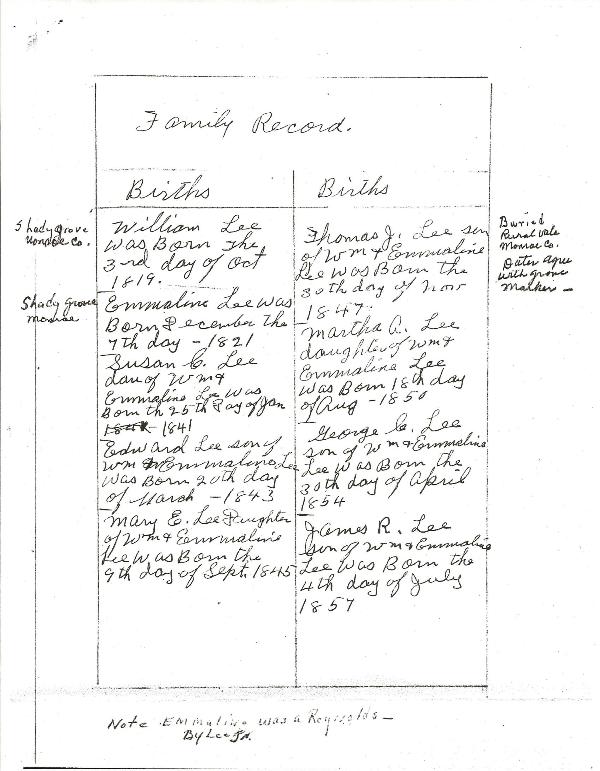 Family Record.
Births
Shady grove
Monroe Co.
William Lee
was Born the
3rd day of Oct
1819.
Shady Grove
Monroe
Emmaline Lee was
Born December the
7th day - 1821
Susan C. Lee
dau of Wm &
Emmaline Lee was
Born th 25th Day of Jan
1841
Edward Lee son of
Wm & Emmaline Lee
was Born 20th day
of March - 1843
Mary E. Lee Daughter
of Wm & Emmaline
Lee was Born the
9th day of Sept. 1845
Births
Thomas J. Lee son
of Wm & Emmaline
Lee was Born the
30th day of Nov
1847.
Buried
Rural Vale
Monroe Co.
Dates agree
with grave
Marker -
Martha A. Lee
daughter of Wm &
Emmaline Lee
was Born 18th day
of Aug - 1850
George C. Lee
son of Wm & Emmaline
Lee was Born the
30th day of April
1854
James R. Lee
son of Wm & Emmaline
Lee was Born the
4th day of July
1857
Note Emmaline was a Reynolds -
By Lee Jr.